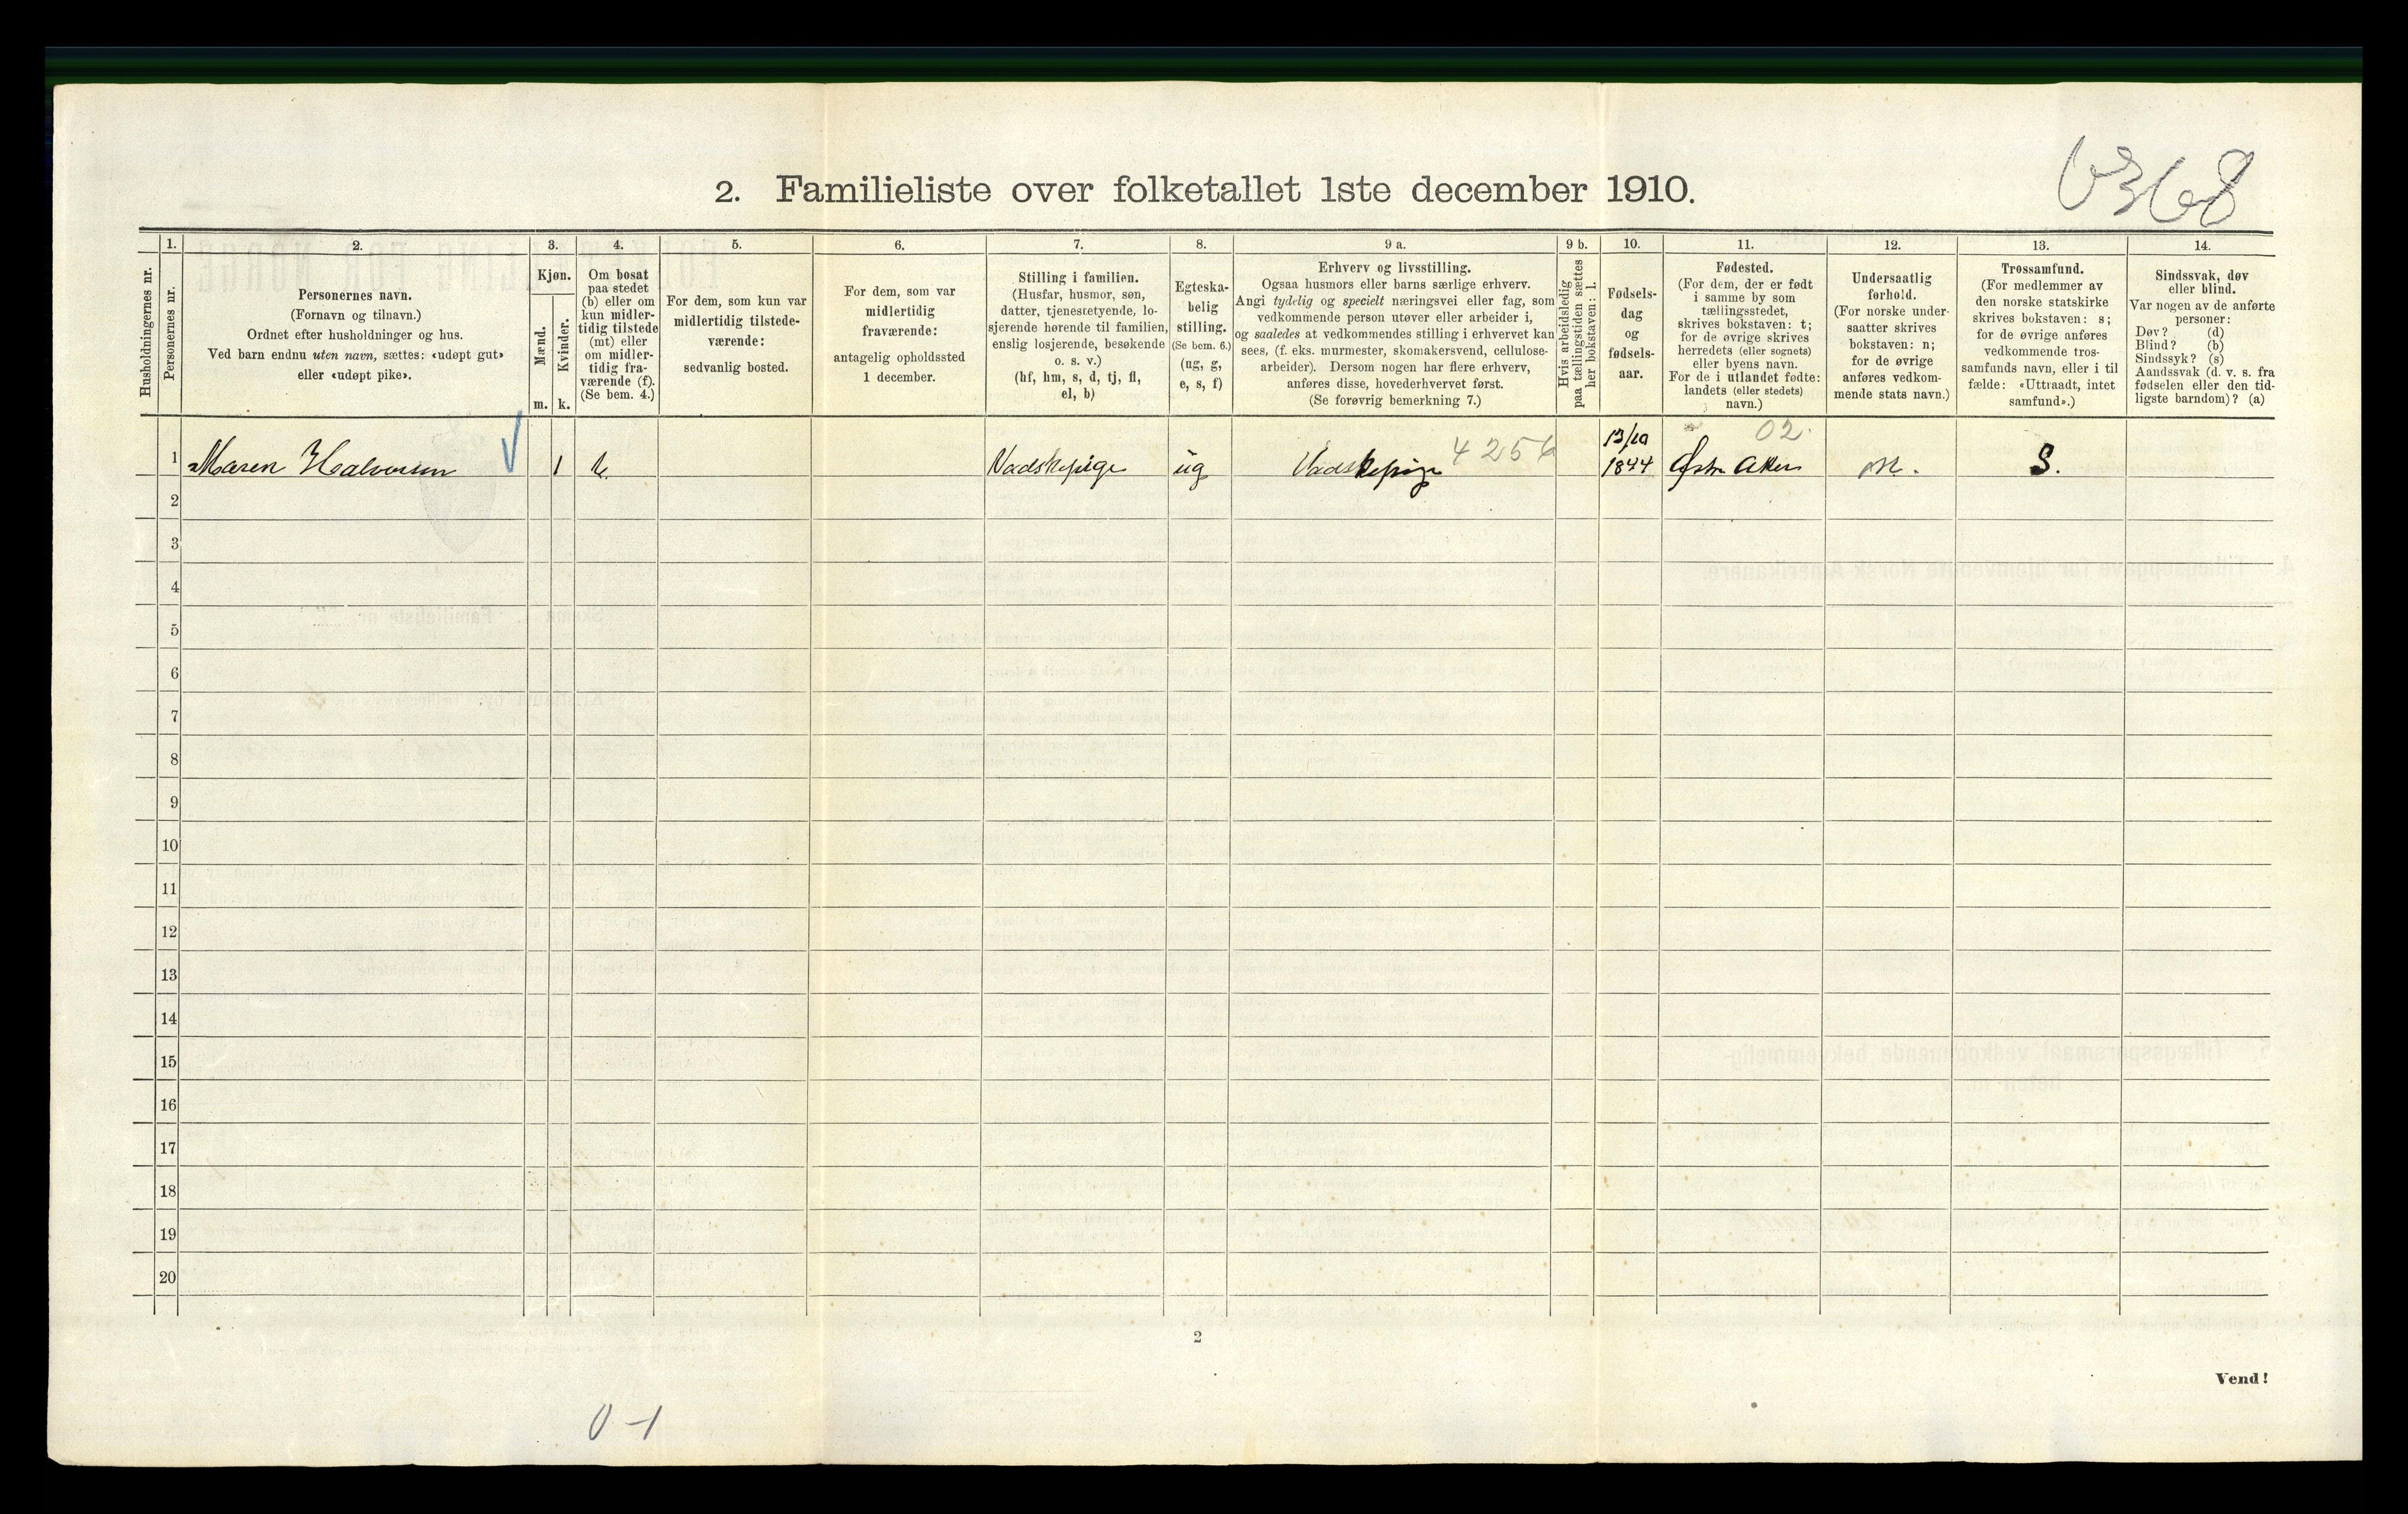 6368
2. Familieliste over folketallet 1ste december 1910.
Husholdningernes nr.
1.
Personernes nr.
2.
Personernes navn.
(Fornavn og tilnavn.)
Ordnet efter husholdninger og hus.
Ved barn endnu uten navn, sættes: «udøpt gut»
eller «udøpt pike».
3.
Kjøn.
Mænd.
Kvinder.
m. k.
4.
Om bosat
paa stedet
(b) eller om
kun midler-
tidig tilstede
(mt) eller
om midler-
tidig fra-
værende (f).
(Se bem. 4.)
5.
For dem, som kun var
midlertidig tilstede-
værende:
sedvanlig bosted.
6.
For dem, som var
midlertidig
fraværende:
antagelig opholdssted
1 december.
7.
Stilling i familien.
(Husfar, husmor, søn,
datter, tjenestetyende, lo-
sjerende hørende til familien,
enslig losjerende, besøkende
o. s. v.)
(hf, hm, s, d, tj, fl,
el, b)
8.
Egteska-
belig
stilling.
(Se bem. 6.)
(ug, g,
e, s, f)
9 a.
Erhverv og livsstilling.
Ogsaa husmors eller barns særlige erhverv.
Angi tydelig og specielt næringsvei eller fag, som
vedkommende person utøver eller arbeider i,
og saaledes at vedkommendes stilling i erhvervet kan
sees, (f. eks. murmester, skomakersvend, cellulose-
arbeider). Dersom nogen har flere erhverv,
anføres disse, hovederhvervet først.
(Se forøvrig bemerkning 7.)
9 b.
Hvis arbeidsledig
paa tællingstiden sættes
her bokstaven: l.
10.
Fødsels-
dag
og
fødsels-
aar.
11.
Fødested.
(For dem, der er født
i samme by som
tællingsstedet,
skrives bokstaven: t;
for de øvrige skrives
herredets (eller sognets)
eller byens navn.
For de i utlandet fødte:
landets (eller stedets)
navn.)
12.
Undersaatlig
forhold.
(For norske under-
saatter skrives
bokstaven: n;
for de øvrige
anføres vedkom-
mende stats navn.)
13.
Trossamfund.
(For medlemmer av
den norske statskirke
skrives bokstaven: s;
for de øvrige anføres
vedkommende tros-
samfunds navn, eller i til
fælde: «Uttraadt, intet
samfund».)
14.
Sindssvak, døv
eller blind.
Var nogen av de anførte
personer:
Døv? (d)
Blind? (b)
Sindssyk? (s)
Aandssvak (d. v. s. fra
fødselen eller den tid-
ligste barndom)? (a)
13/10 02.
1 Maren Halvorsen 1 Vadskepige ug Vadskepige 4256 1844 Østr. Aker n. S.
2
3
4
5
6
7
8
9
10
11
12
13
14
15
16
17
18
19
20
2
Vend!
0-1